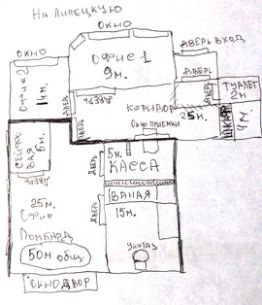 НА ЛИПЕЦКУЮ
ОКНО
ОКНО
ОФИС 1
9м.
ДВЕРЬ ВХОД
ДВЕРЬ
ОФИС 2
14м.
ДВЕРЬ
ДВЕРЬ
КОРИДОР
25м.
ТУАЛЕТ
2м
4м
ОКНО ПРИЕМКИ
6м.
ДВЕРЬ
ДВЕРЬ
5м.
КАССА
ВАНАЯ
15м.
ДВЕРЬ
25м.
ОФИС
ЛОМБАРД
50м общ.
УНИТАЗ
ОКНО ДВОР